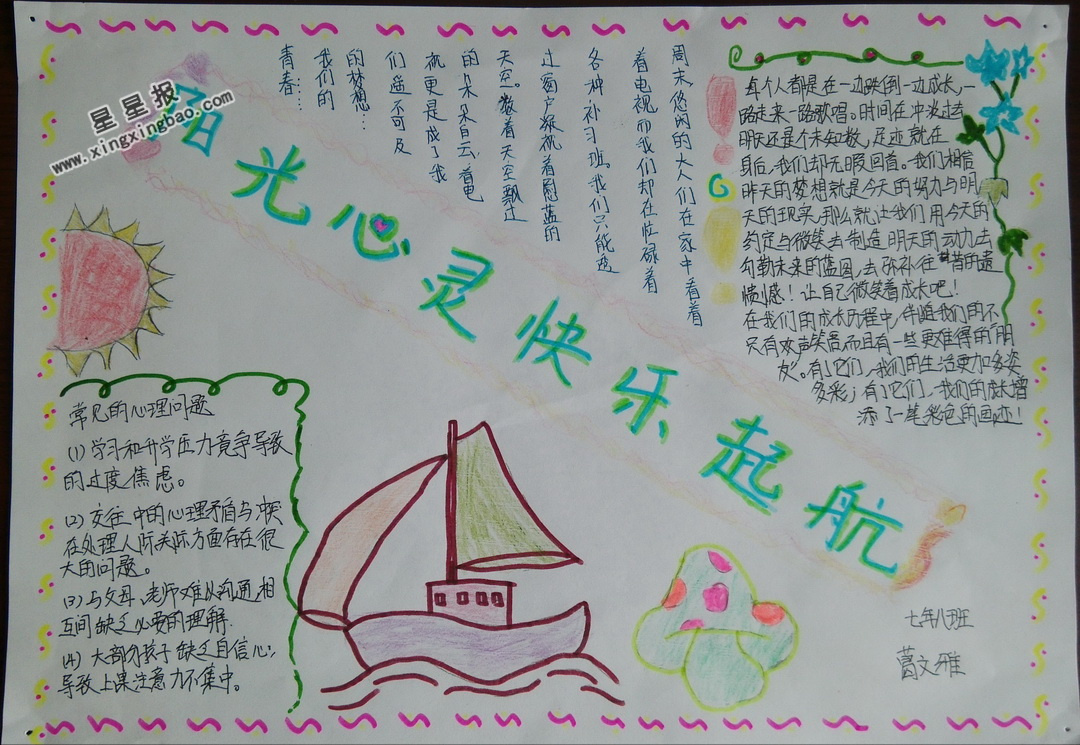 星星报
www.xingxingbao.com
阳光心灵快乐起航
周末悠闲的大人们在家中看着
着电视而我们却在忙碌着
各种补习班。我们只能透
过窗户凝视着慰蓝的
天空。数着天空飘过
的朵朵白云.着电
视更是成了我
们遥不可及
的梦想…
我们的
青春……
每个人都是在一边跌倒一边成长,一
路走来一路歌唱。时间在冲淡过去
明天还是个未知数,足迹就在
身后,我们却无暇回首。我们相信
昨天的梦想就是今天的努力与明
天的现实,那么就让我们用今天的
约定与微笑去制造明天的动力去
勾勒未来的蓝图,去弥补往昔的遗
憾!让自己微笑着成长吧!
在我们的成长历程中,伴随我们的不
只有欢声笑语而且有一些更难得的"朋
友"。有了它们,我们的生活更加多姿
多彩;有了它们,我们的成长增
添了一笔彩色的画迹!
常见的心理问题
(1)学习和升学压力竞争导致
的过度焦虑。
(2)交往中的心理矛盾与冲突
在处理人际关际方面存在很
大的问题。
(3)与父母、老师难以沟通,相
互间缺乏必要的理解.
(4)大部分孩子缺乏自信心;
导致上课注意力不集中。
七年八班
葛文雅